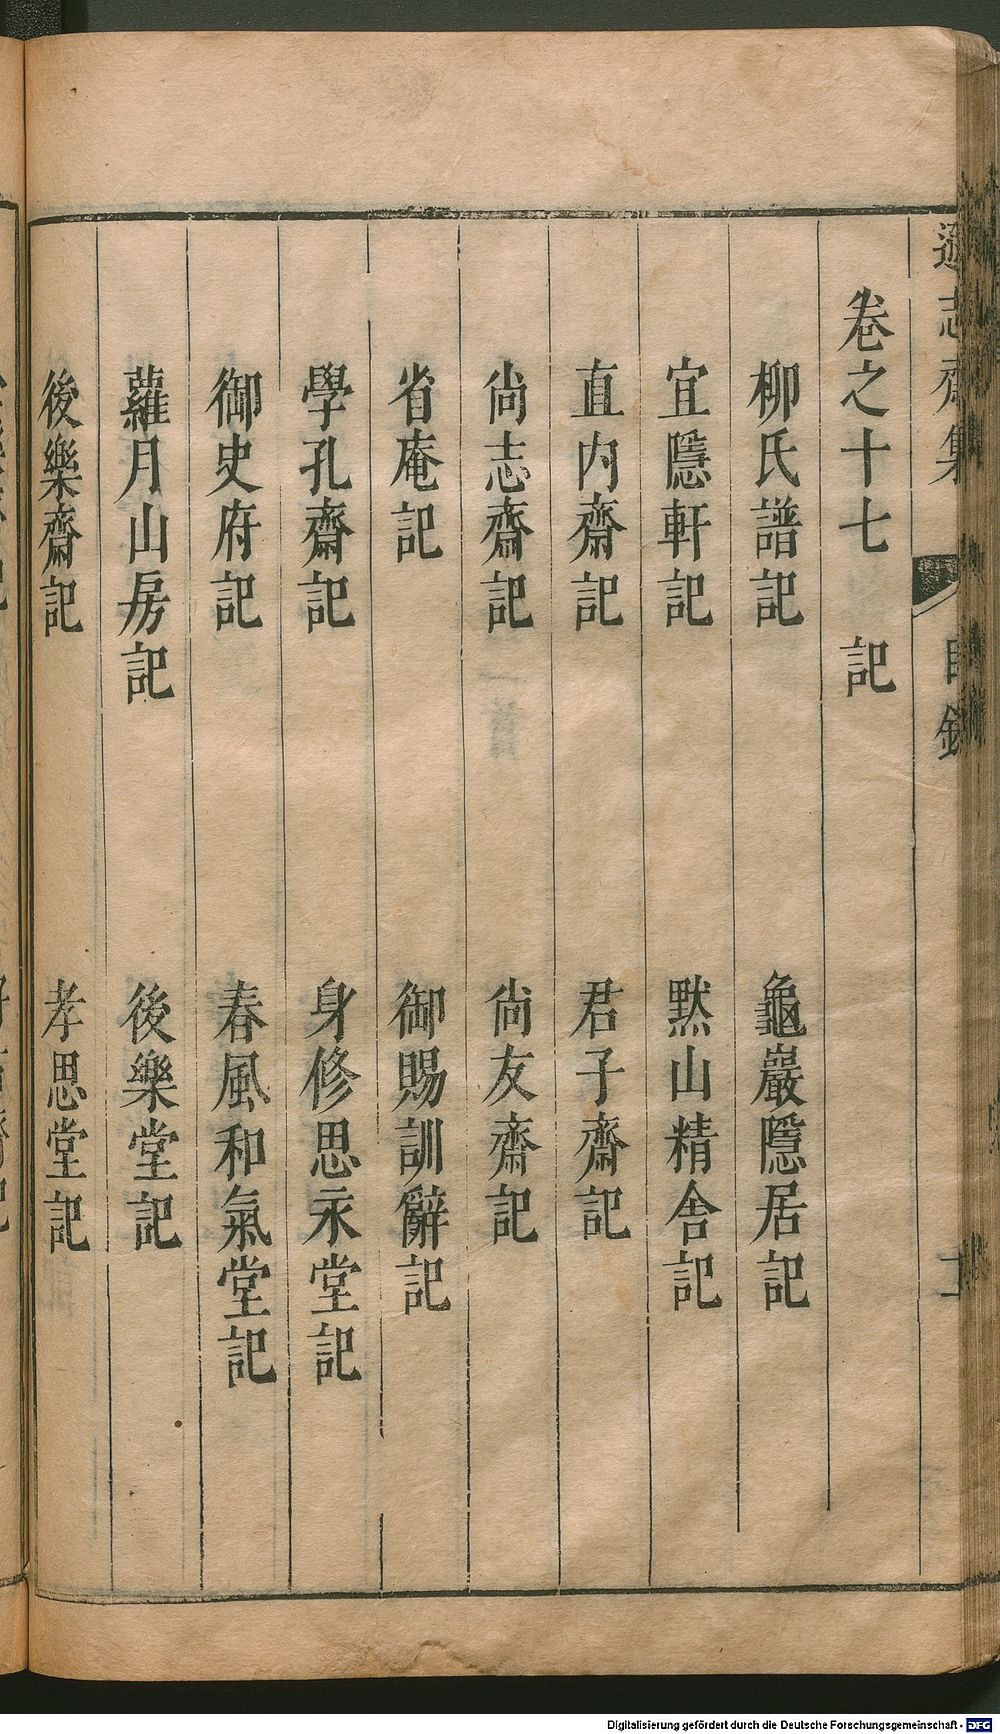 遜志齋集 目錄
卷之十七 記
柳氏譜記 龜巖隱居記
宜隱軒記 默山精舍記
直內齋記 君子齋記
尙志齋記 尙友齋記
省庵記 御賜訓辭記
學孔齋記 身修思永堂記
御史府記 春風和氣堂記
蘿月山房記 後樂堂記
後樂齋記 孝思堂記
Digitalisierung gefördert durch die Deutsche Forschungsgemeinschaft - DFG